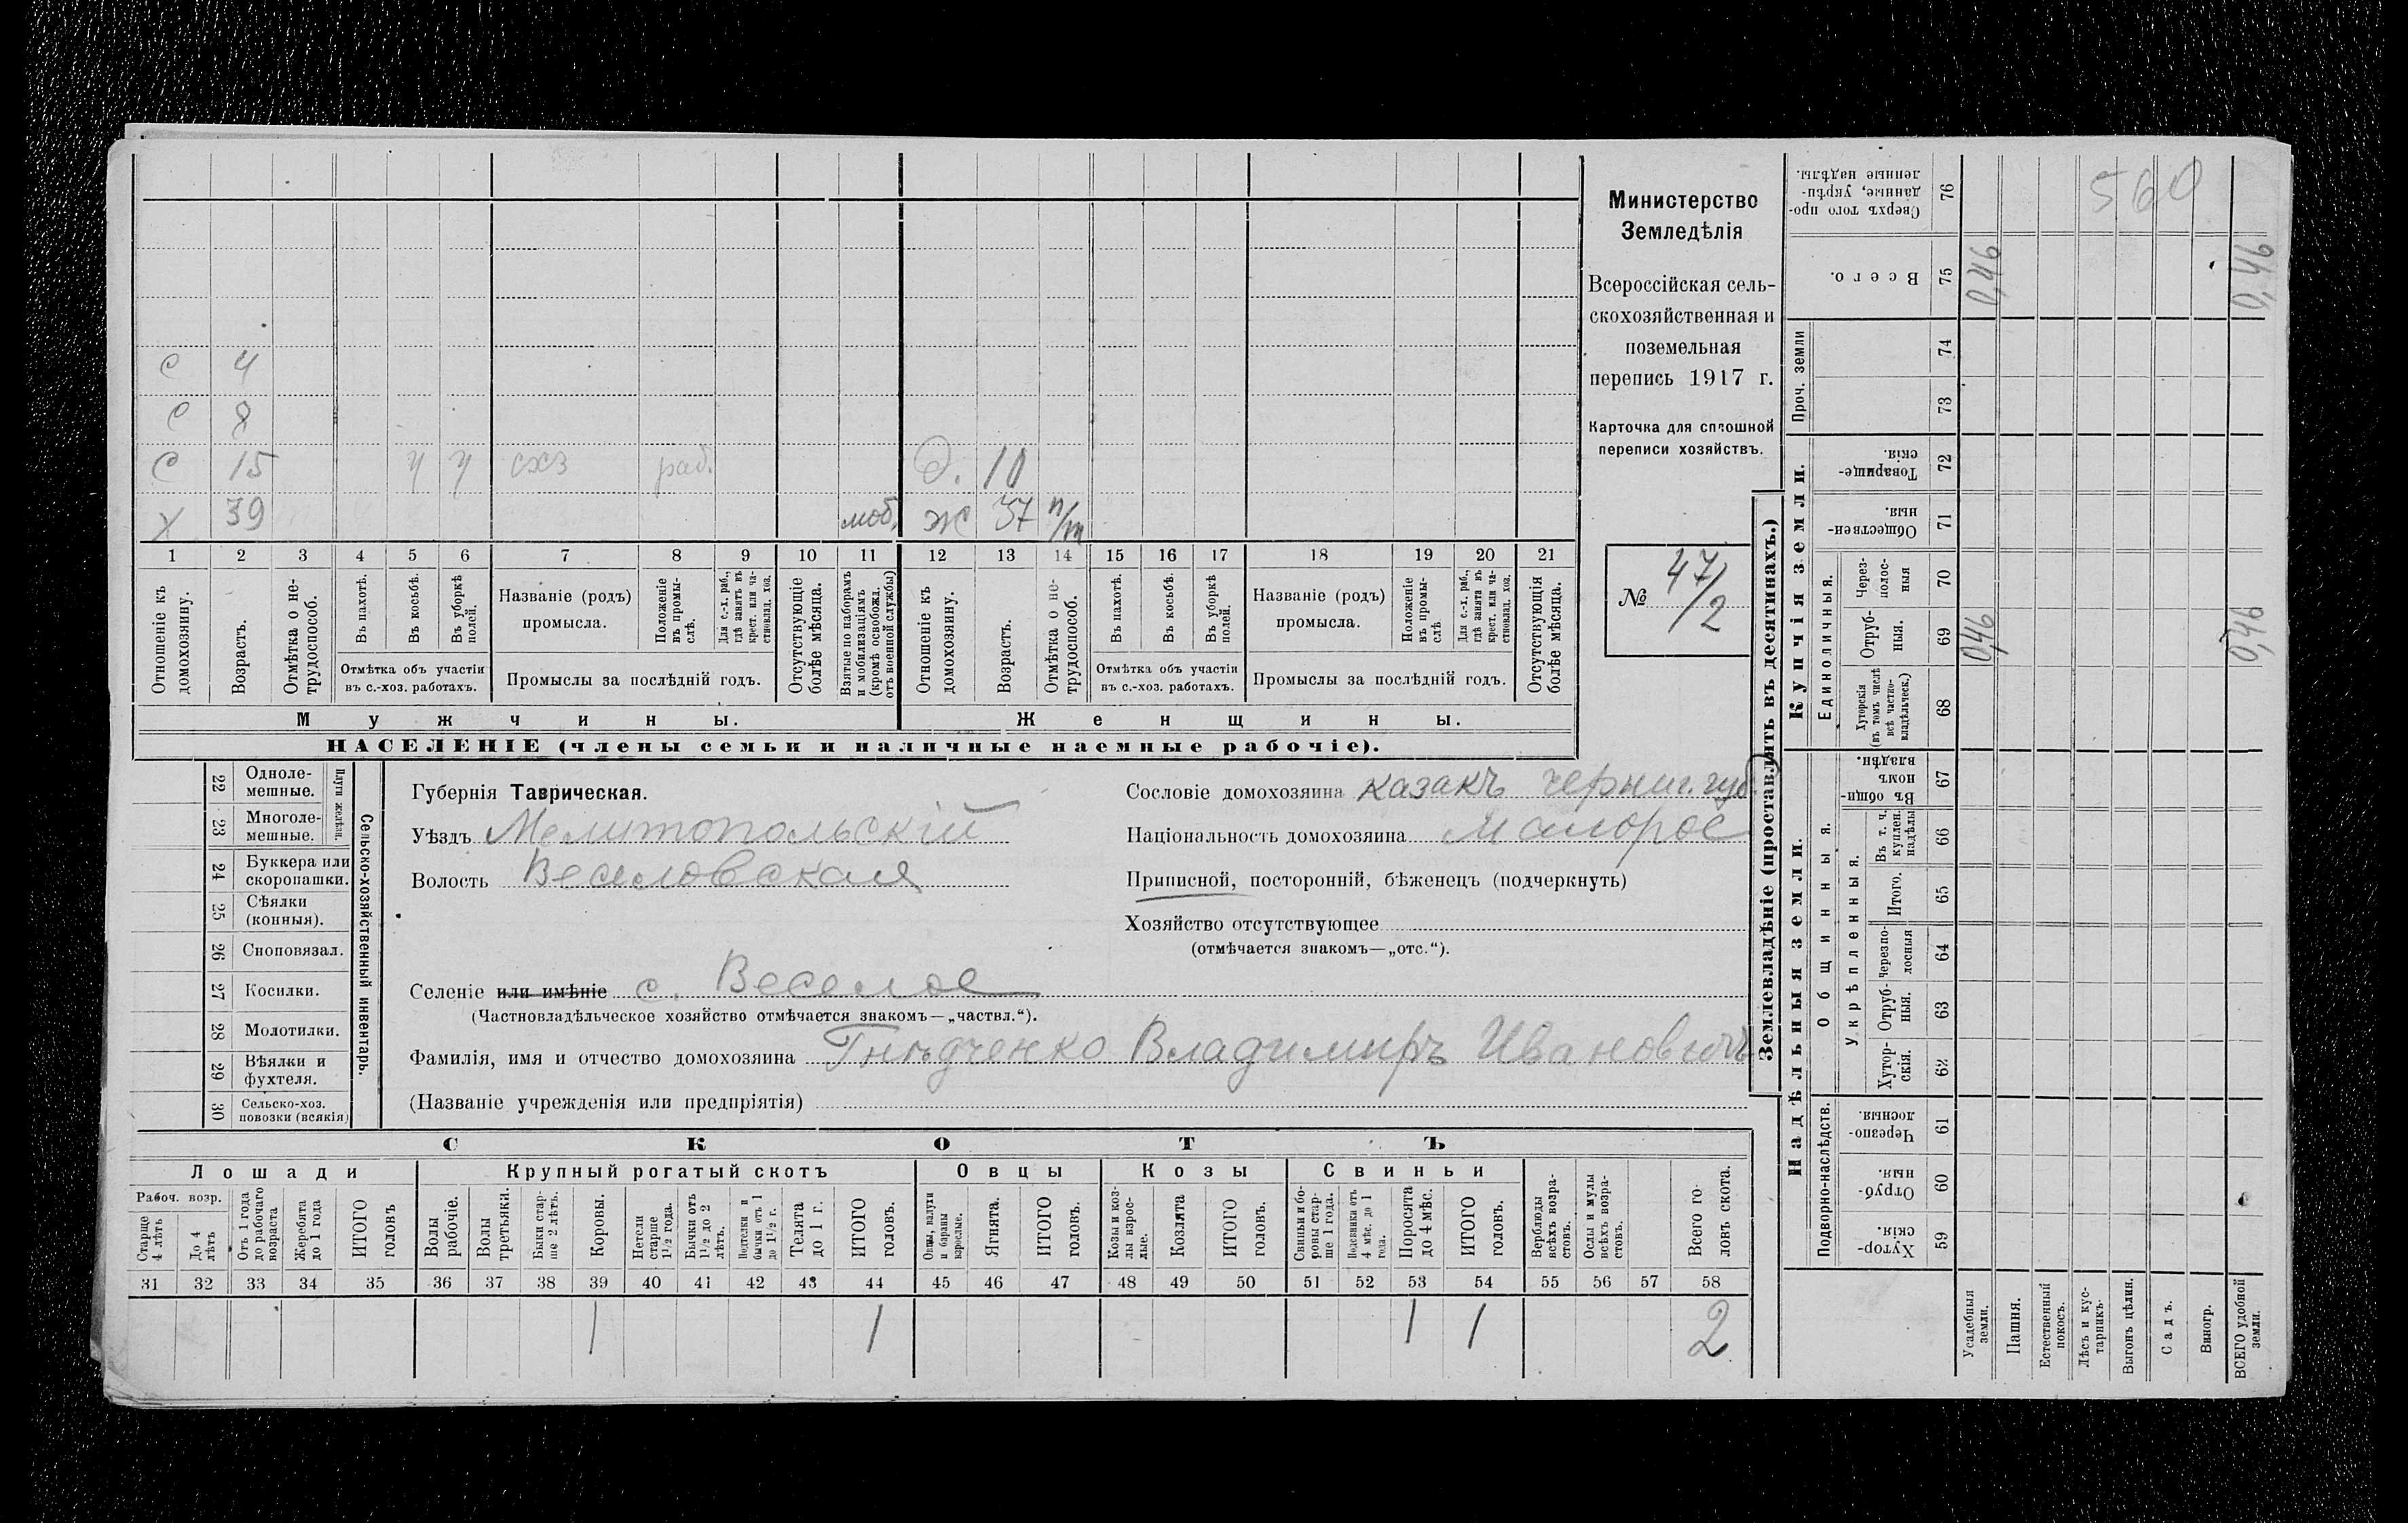 С 4
С 8
С 15 у у схз раб. Д. 10
Х 39 моб. Ж 37 п/т
1 2 3 4 5 6 7 8 9 10 11 12 13 14 15 16 17 18 19 20 21
Отношеніе къ домохозяину.
Возрастъ.
Отмѣтка о нетрудоспособ.
Въ пахотѣ.
Въ косьбѣ.
Въ уборкѣ полей.
Отмѣтка объ участіи
въ с.-хоз. работахъ.
Названіе (родъ)
промысла.
Положеніе въ промыслѣ.
Для с.-х. раб., гдѣ занятъ въ крест. или частновлад. хоз.
Промыслы за послѣдній годъ.
Отсутствующіе болѣе мѣсяца.
Взятые по наборамъ и мобилизаціямъ (кромѣ освобожд. отъ военной службы)
Отношеніе къ домохозяину.
Возрастъ.
Отмѣтка о нетрудоспособ.
Въ пахотѣ.
Въ косьбѣ.
Въ уборкѣ полей.
Отмѣтка объ участіи
въ с.-хоз. работахъ.
Названіе (родъ)
промысла.
Положеніе въ промыслѣ
Для с.-х. раб., гдѣ занята въ крест. или частновлад. хоз.
Промыслы за послѣдній годъ.
Отсутствующія болѣе мѣсяца.
Мужчины. Женщины.
НАСЕЛЕНІЕ (члены семьи и наличные наемные рабочіе).
Министерство
Земледѣлія
Всероссійская сель-
скохозяйственная и
поземельная
перепись 1917 г.
Карточка для сплошной
переписи хозяйствъ.
№ 47/2
22 Одноле-
мешные.
23 Многоле-
мешные.
Плуги желѣзн.
24 Буккера или
скоропашки.
25 Сѣялки
(конныя).
26 Сноповязал.
27 Косилки.
28 Молотилки.
29 Вѣялки и
фухтеля.
30 Сельско-хоз.
повозки (всякія)
Сельско-хозяйственный инвентарь.
Губернія Таврическая.
Уѣздъ Мелитопольскій
Волость Веселовская
Сословіе домохозяина казакъ черниг. губ.
Національность домохозяина Малорос
Приписной, посторонній, бѣженецъ (подчеркнуть)
Хозяйство отсутствующее
(отмѣчается знакомъ—„отс.“).
Селеніе или имѣніе с. Веселое
(Частновладѣльческое хозяйство отмѣчается знакомъ—„частвл.“).
Фамилія, имя и отчество домохозяина Гнѣдченко Владимиръ Ивановичъ
(Названіе учрежденія или предпріятія)
СКОТЪ
Лошади Крупный рогатый скотъ Овцы Козы Свиньи
Рабоч. возр.
Старше 4 лѣтъ
До 4 лѣтъ
Отъ 1 года до рабочаго возраста
Жеребята до 1 года
ИТОГО головъ
Волы рабочіе.
Волы третьяки.
Быки старше 2 лѣтъ.
Коровы.
Нетели старше 1½ года.
Бычки отъ 1½ до 2 лѣтъ.
Подтелки и бычки отъ 1 до 1½ г.
Телята до 1 г.
ИТОГО головъ.
Овцы, валухи и бараны взрослые.
Ягнята.
ИТОГО головъ.
Козы и козлы взрослые.
Козлята
ИТОГО головъ.
Свиньи и боровы старше 1 года.
Подсвинки отъ 4 мѣс. до 1 года.
Поросята до 4 мѣс.
ИТОГО головъ.
Верблюды всѣхъ возрастовъ.
Ослы и мулы всѣхъ возрастовъ.
Всего головъ скота.
31 32 33 34 35 36 37 38 39 40 41 42 43 44 45 46 47 48 49 50 51 52 53 54 55 56 57 58
1 1 1 1 2
Землевладѣніе (проставлять въ десятинахъ.)
Надѣльныя земли. Купчія земли.
Подворно-наслѣдств.
Общинныя.
Укрѣпленныя.
Единоличныя.
Проч. земли
Сверхъ того проданные, укрѣпленные надѣлы. 76
Всего. 75 0,46 0,46
74
73
Товарищескія. 72
Общественныя. 71
Черезполосныя 70
Отрубныя. 69 0,46 0,46
Хуторскія (въ томъ числѣ всѣ частновладѣльческ.) 68
Въ общинномъ владѣн. 67
Въ т. ч. куплен. надѣлы 66
Итого. 65
Черезполосныя 64
Отрубныя. 63
Хуторскія. 62
Черезполосныя. 61
Отрубныя. 60
Хуторскія. 59
560
Усадебныя земли.
Пашня.
Естественный покосъ.
Лѣсъ и кустарникъ.
Выгонъ цѣлин.
Садъ.
Виногр.
ВСЕГО удобной земли.